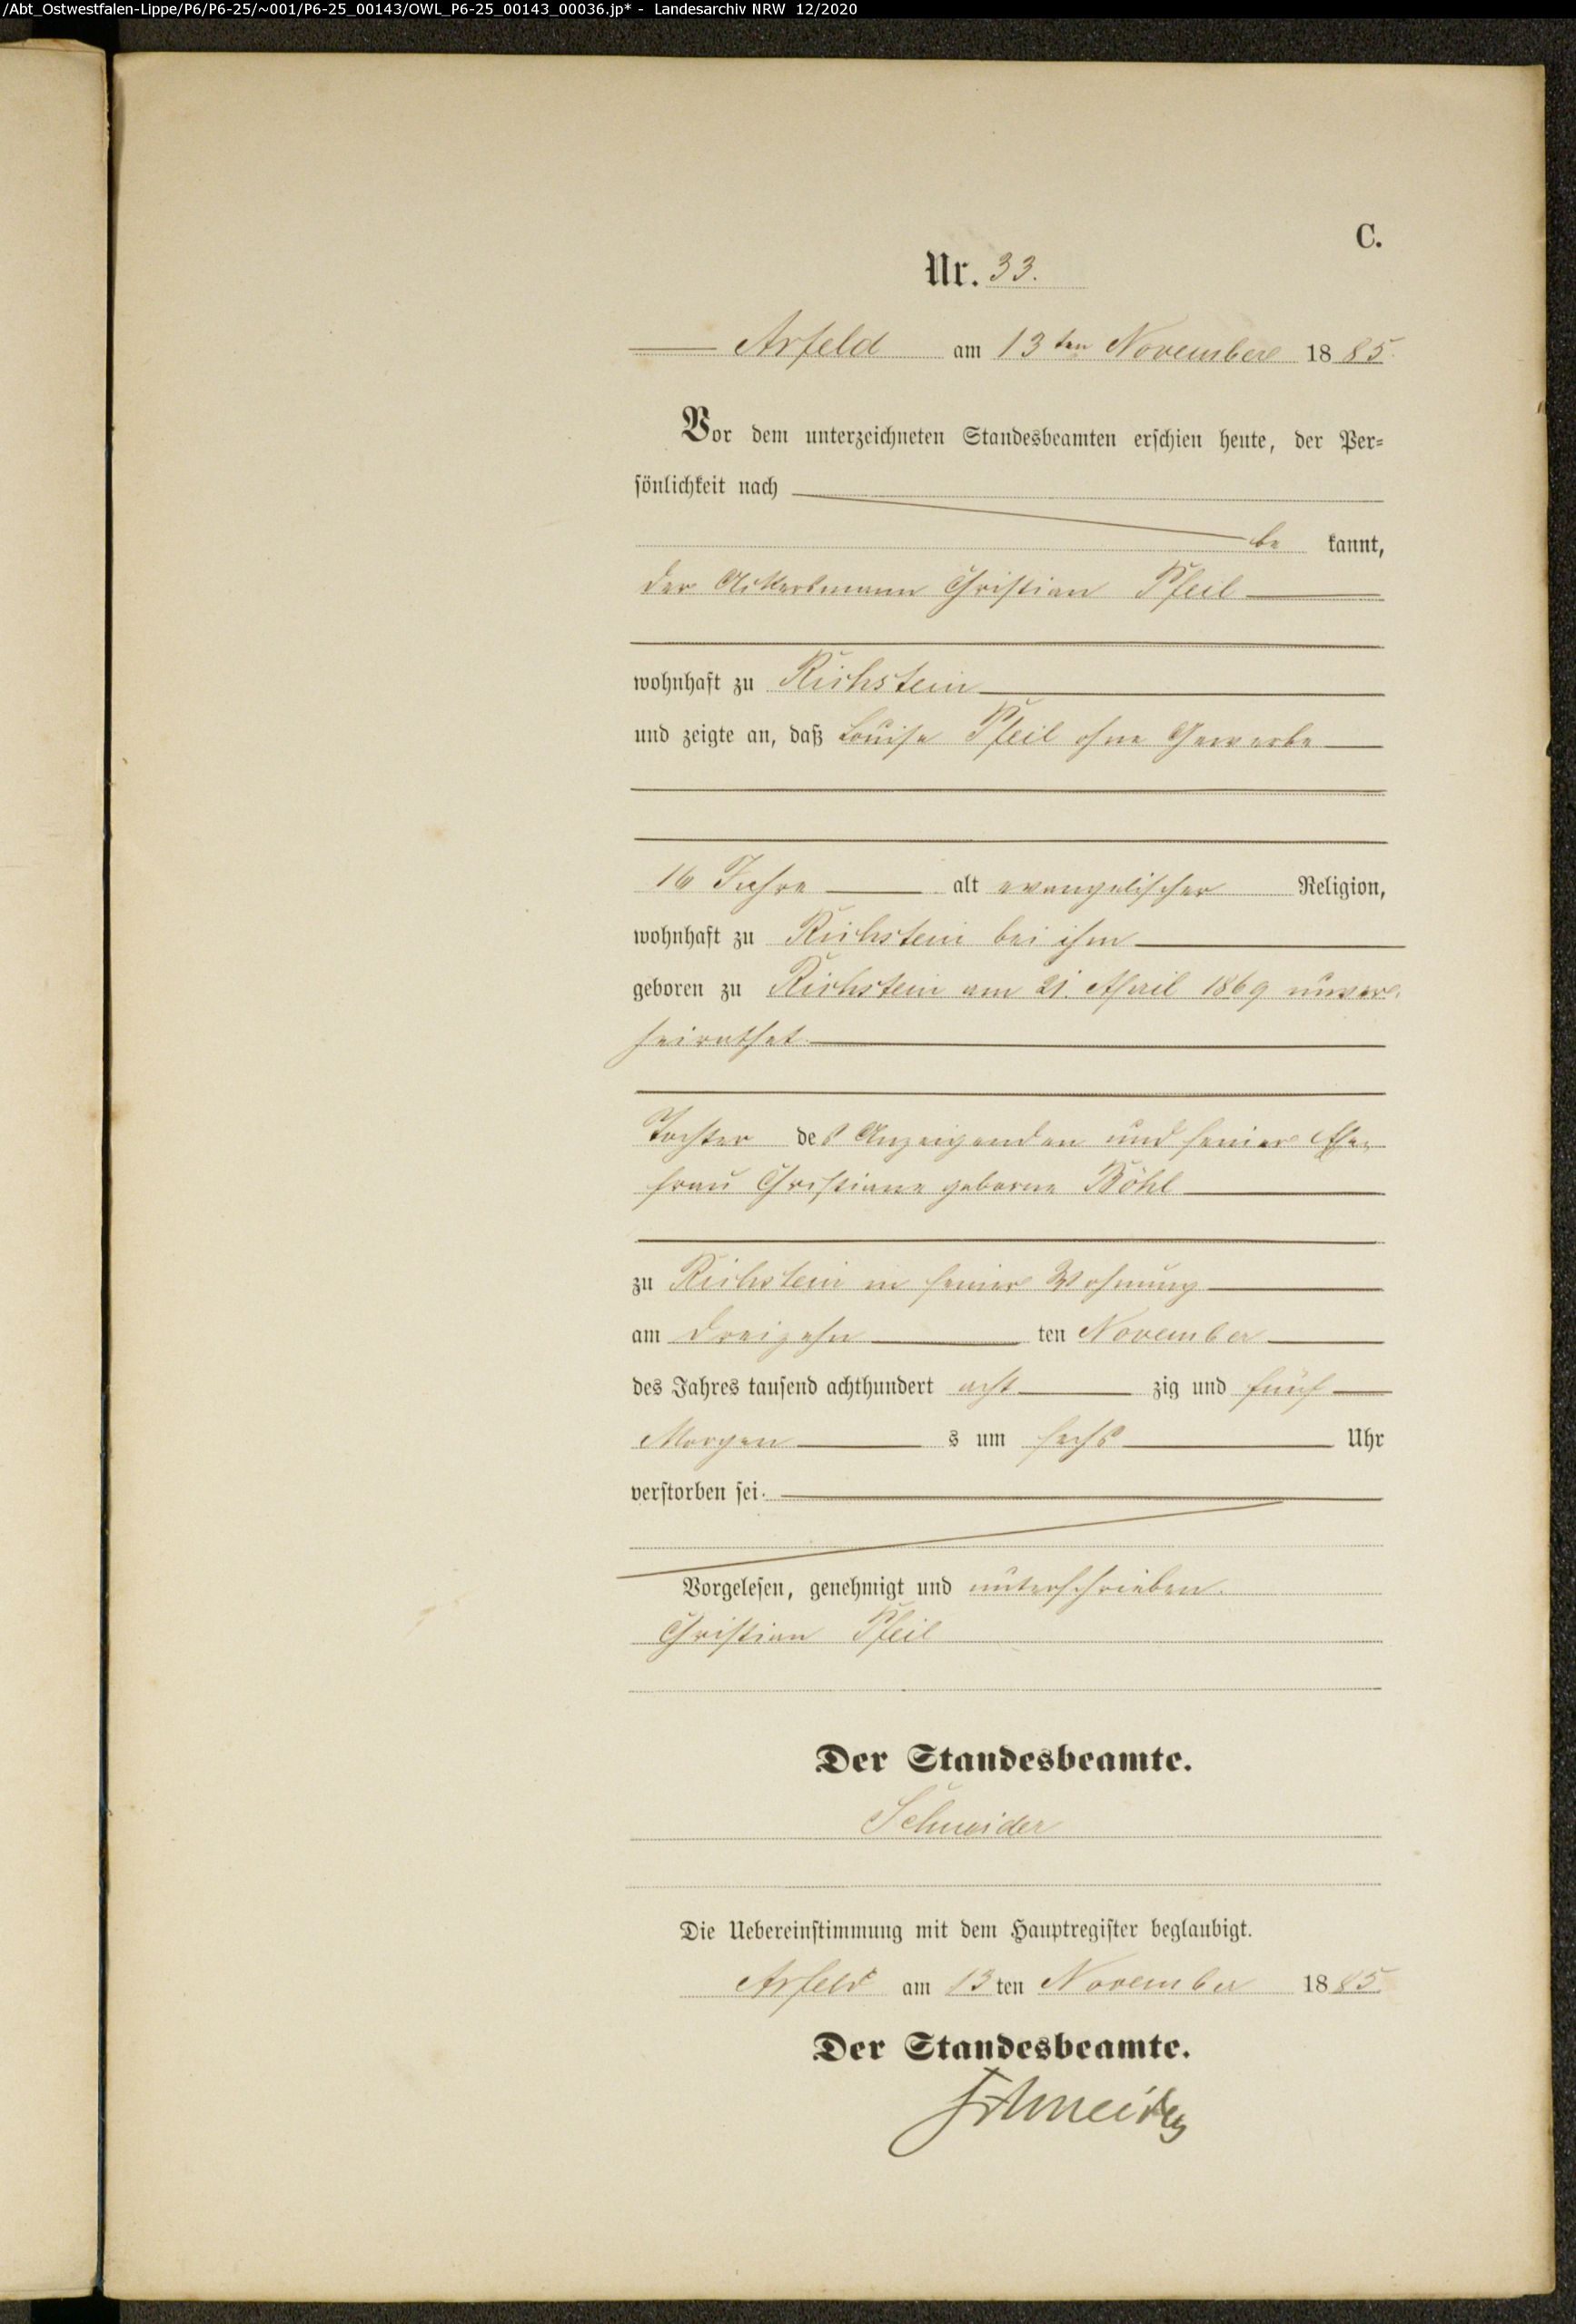 /Abt_Ostwestfalen-Lippe/P6/P6-25/~001/P6-25_00143/OWL_P6-25_00143_00036.jp* - Landesarchiv NRW 12/2020
C.
Nr. 33.
Arfeld am 13ten November 1885.
Vor dem unterzeichneten Standesbeamten erschien heute, der Per-
sönlichkeit nach
be kannt,
der Ackersmann Christian Pfeil
wohnhaft zu Richstein
und zeigte an, daß Louise Pfeil ohne Gewerbe
16 Jahre alt evangelischer Religion,
wohnhaft zu Richstein bei ihm
geboren zu Richstein am 21. April 1869 unver-
heirathet
Tochter des Anzeigenden und seiner Ehe-
frau Christiane geborne Böhl
zu Richstein in seiner Wohnung
am dreizehn ten November
des Jahres tausend achthundert acht zig und fünf
Morgen s um sechs Uhr
verstorben sei.
Vorgelesen, genehmigt und unterschrieben.
Christian Pfeil
Der Standesbeamte.
Schneider
Die Uebereinstimmung mit dem Hauptregister beglaubigt.
Arfeld am 13ten November 1885.
Der Standesbeamte.
Schneider